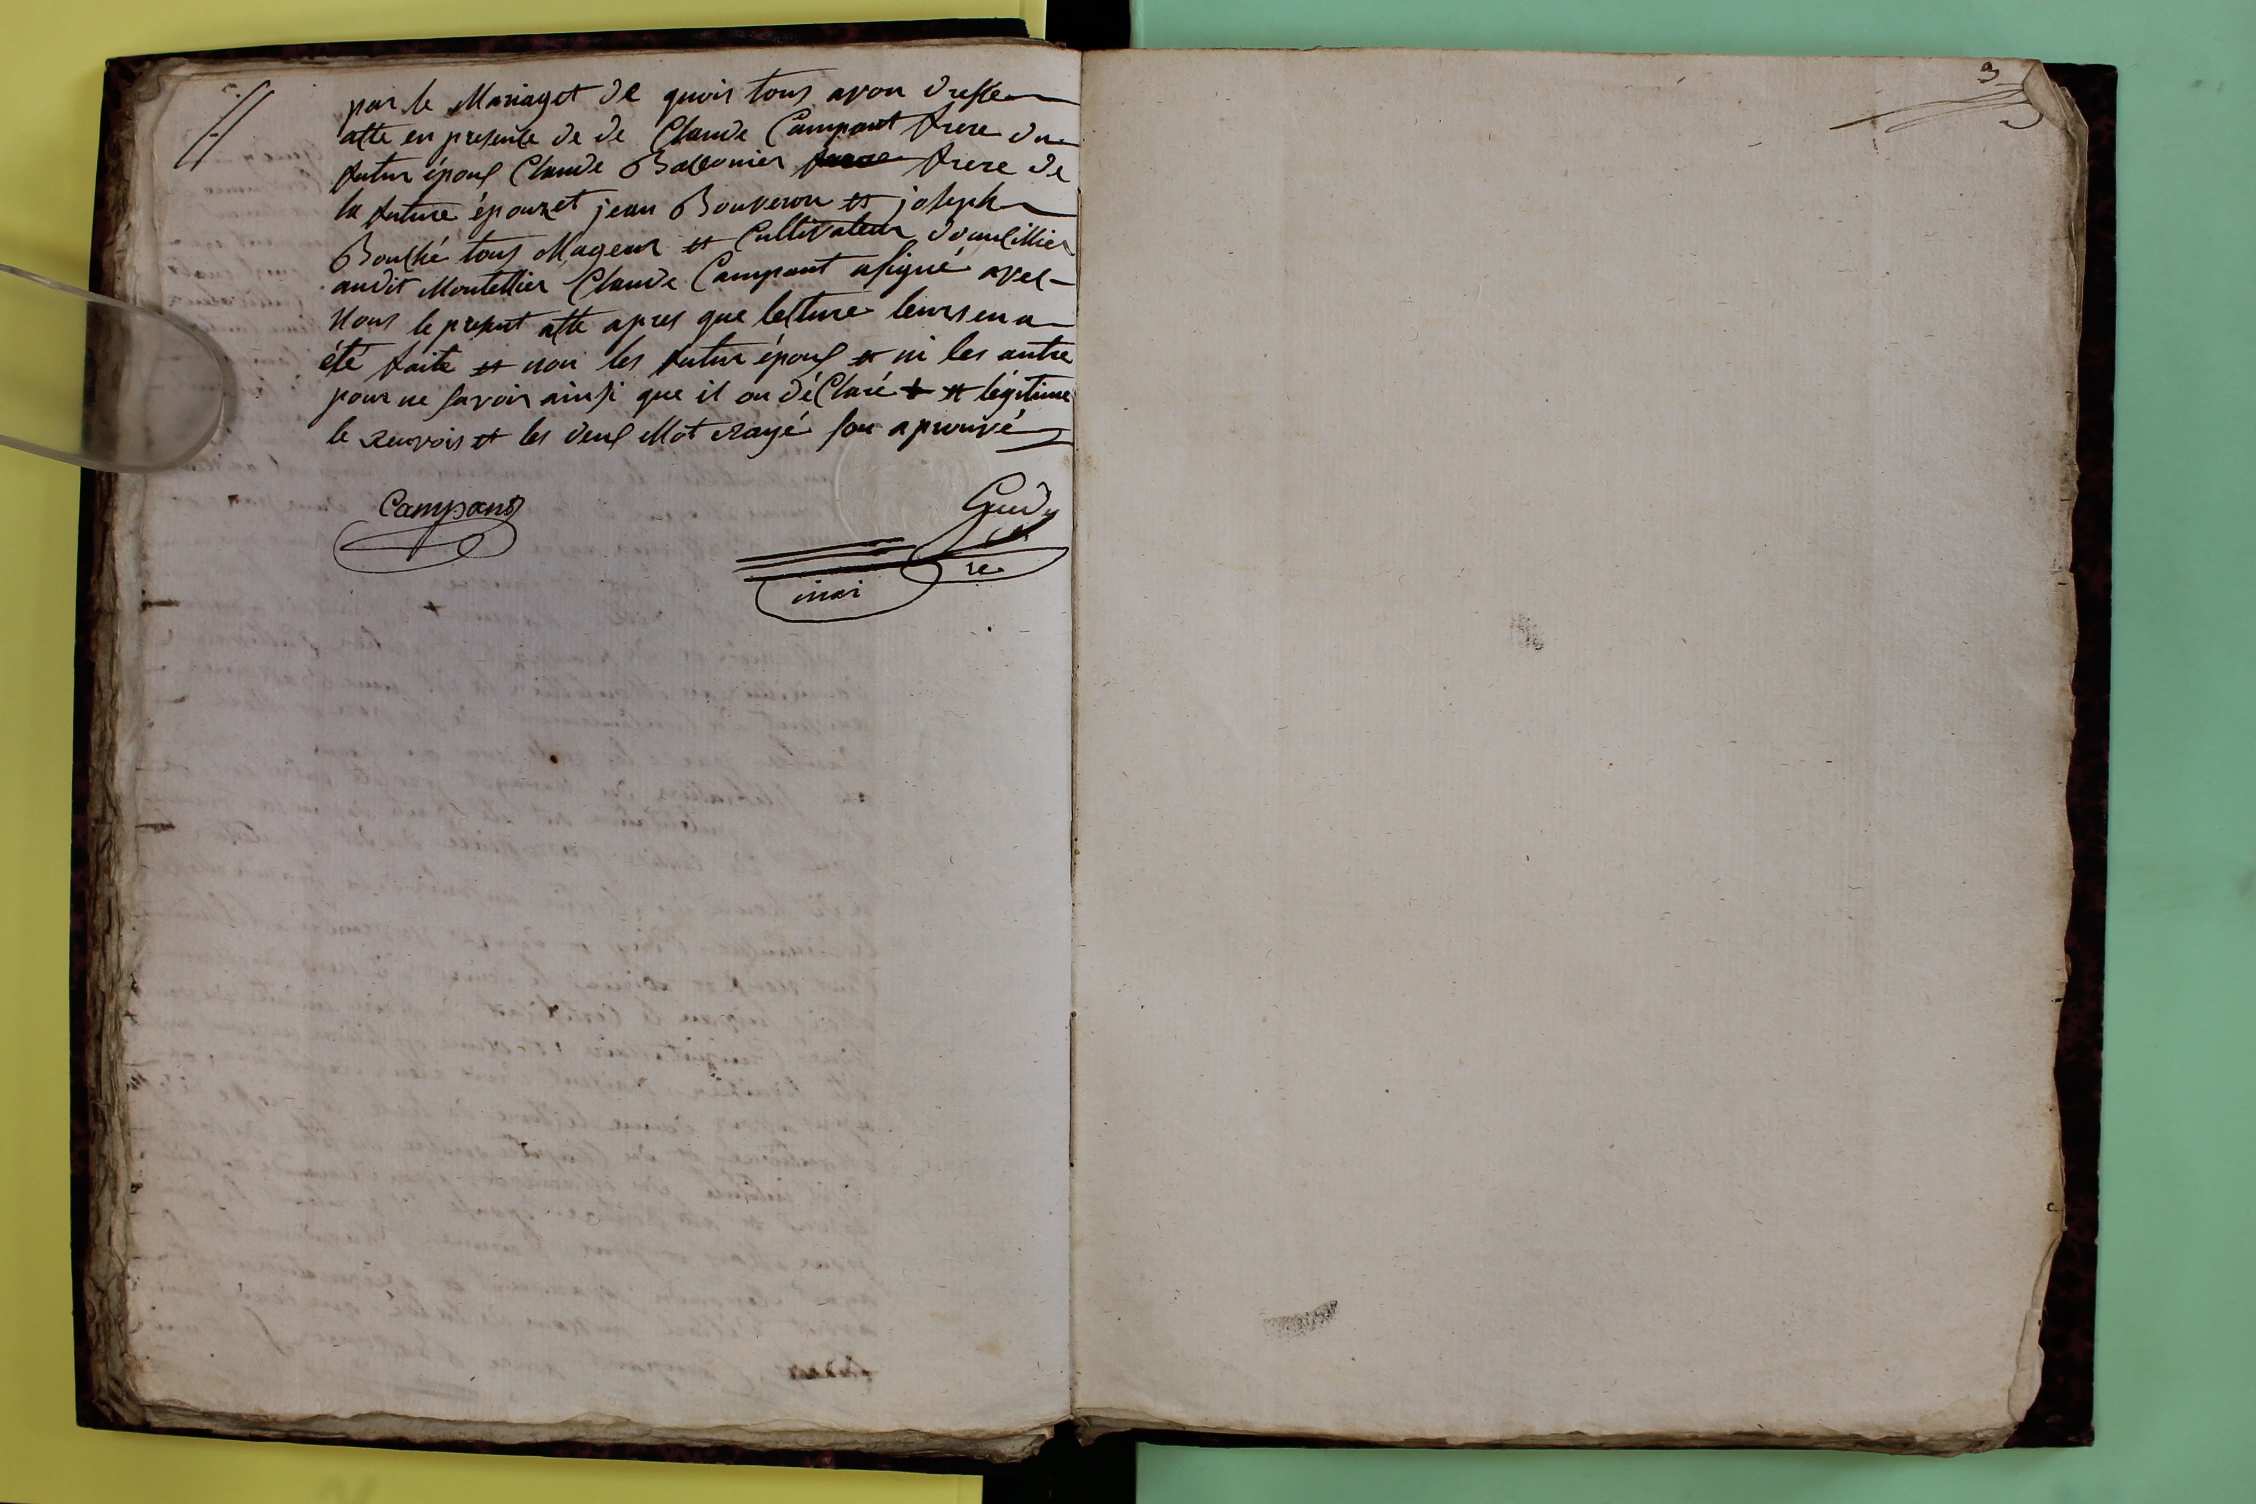 par le Mariaget de quois tous avon dresse
acte en presence de de Claude Campant frere du
futur époux Claude frere de
la future épouzet jean Bouveron et joseph
Bouché tous Mageur et Cultivateur domicillier
audit Montellier Claude Campant asigné avec
Nous le presant acte apres que lecture leurs en a
été faite et non les futur époux et ni les autre
pour ne savoir ainsi que il on déClaré + et légitime
le renvois et les deux Mot rayé son aprouvé
Campand
Guidy
re
mai
3